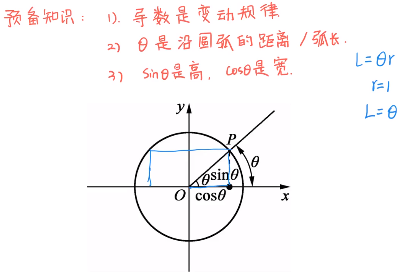 预备知识: 1). 导数是变动规律
2) θ是沿圆弧的距离/弧长.
3) sinθ是高, cosθ是宽.
L=θr
r=1
L=θ
y
P
θ
θ sinθ
O cosθ x